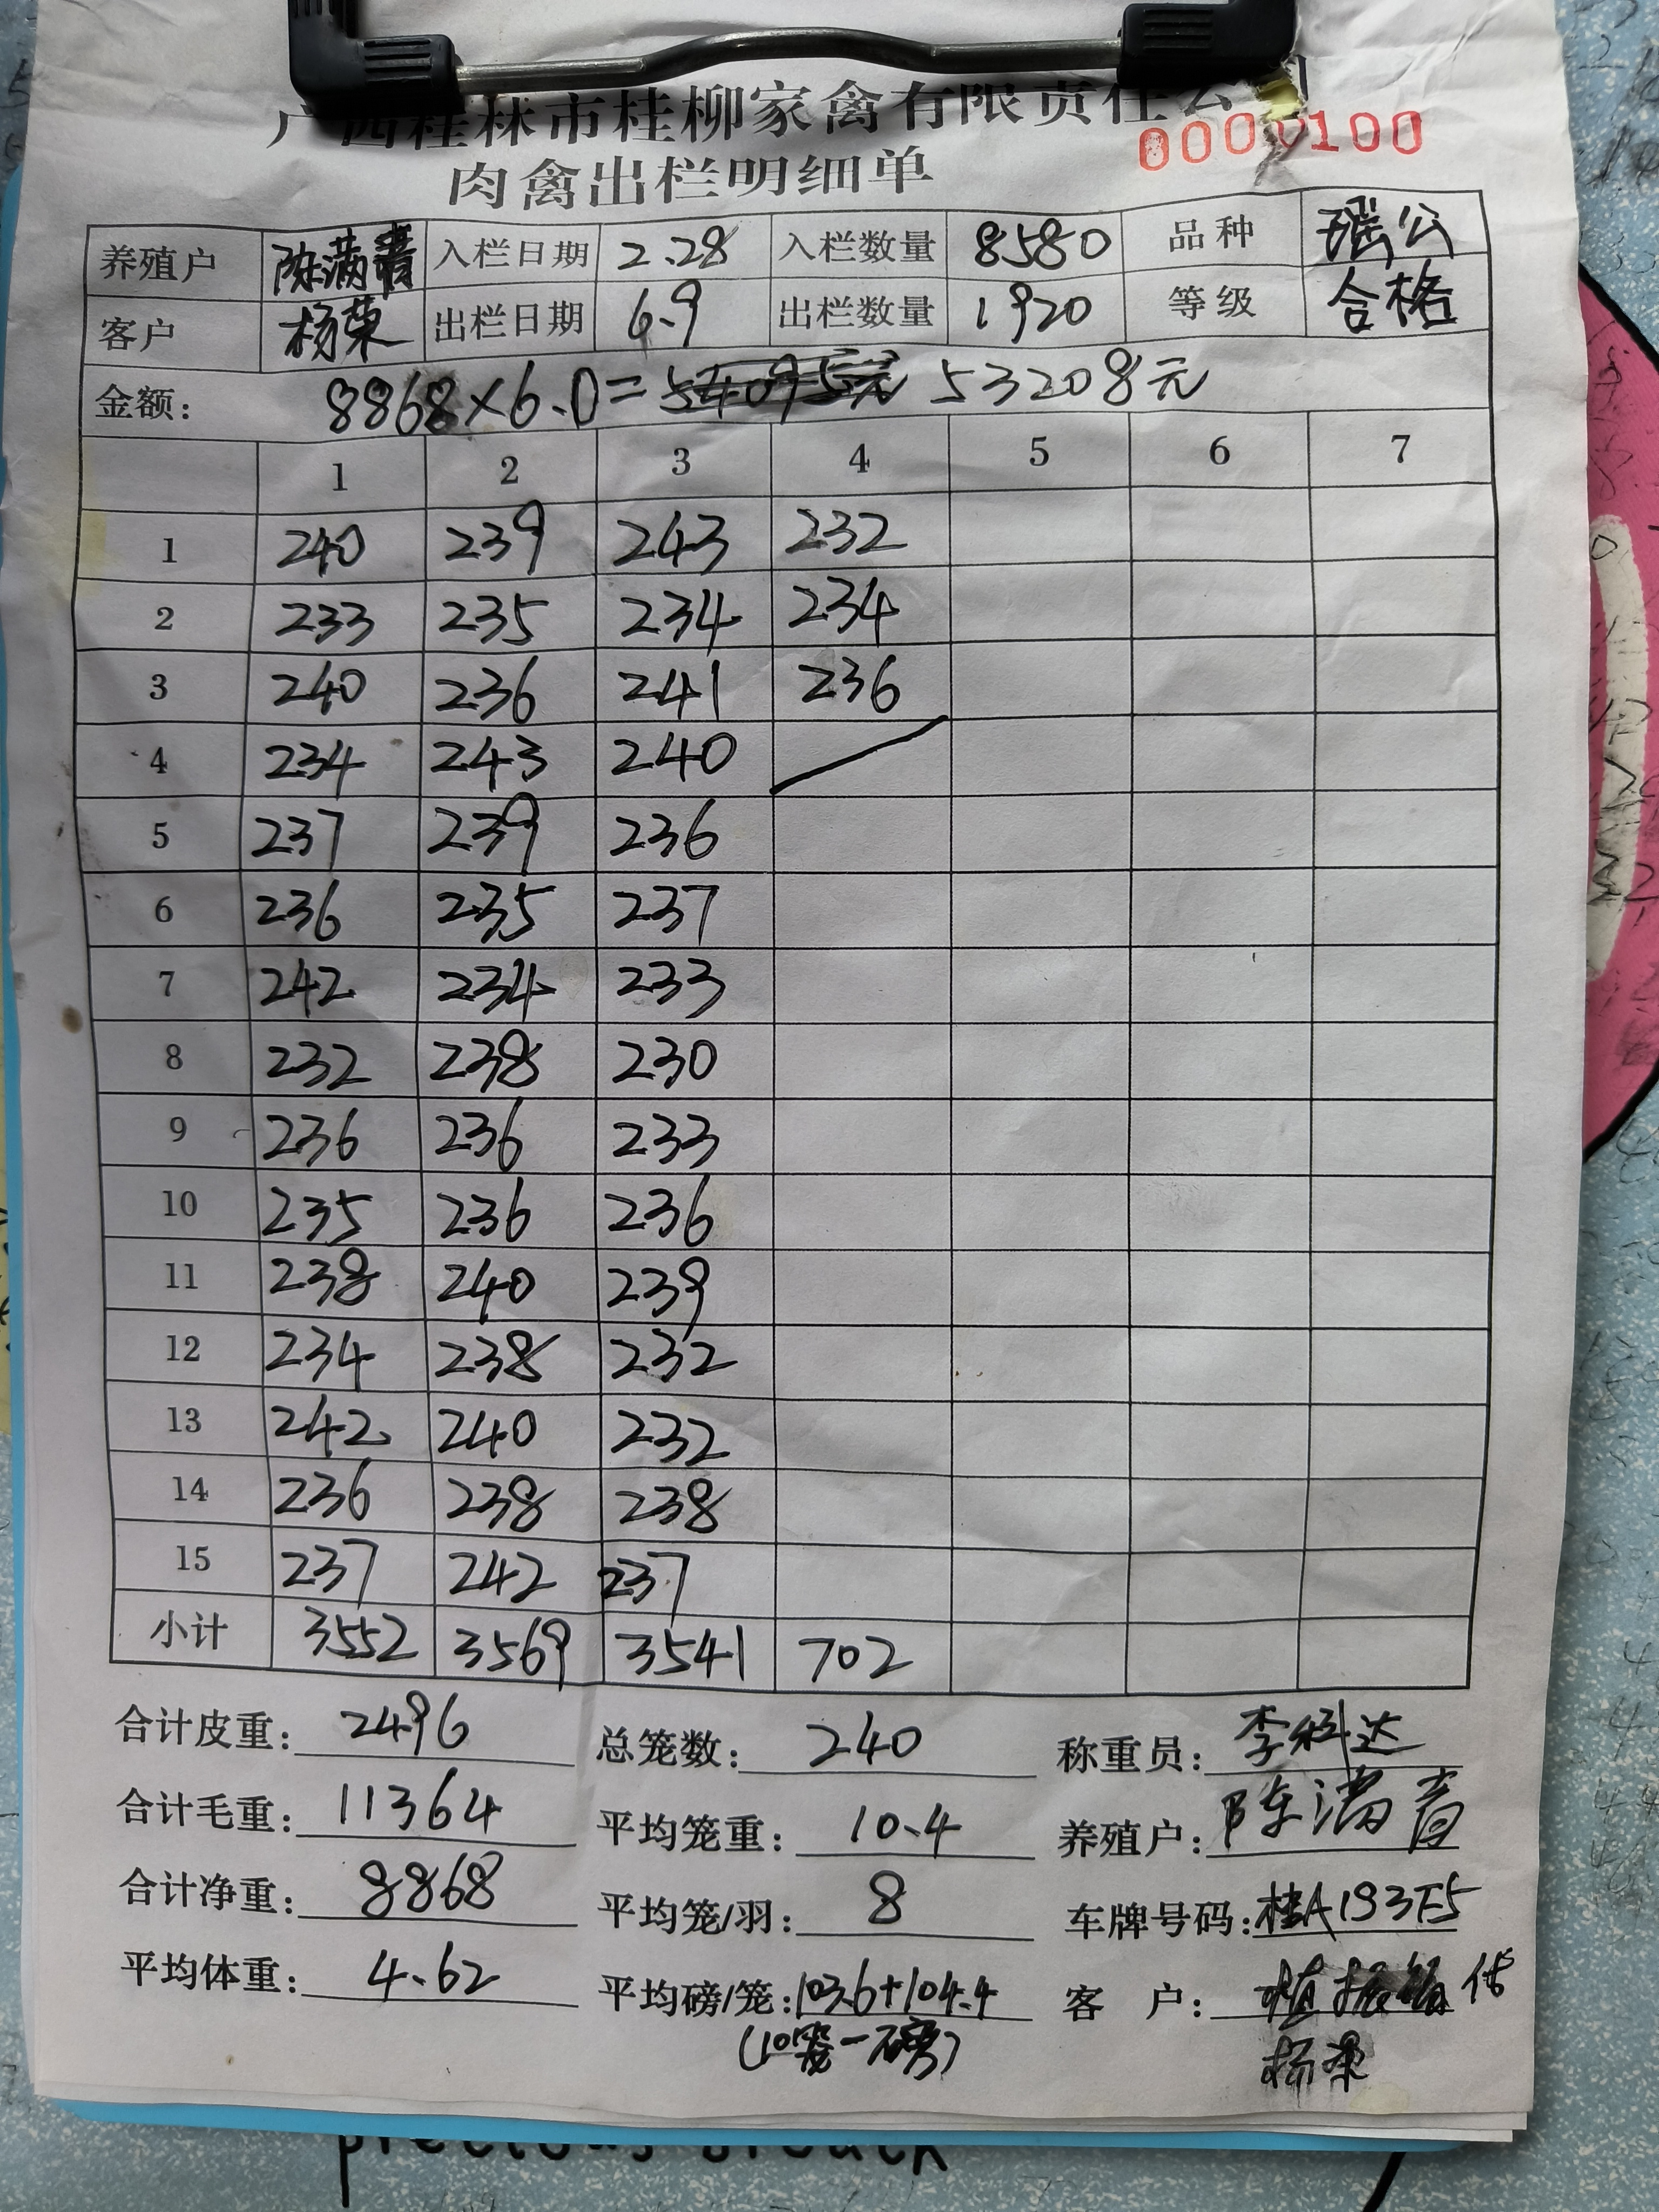 广西桂林市桂柳家禽有限责任公司
0000100
肉禽出栏明细单
养殖户 陈满青 入栏日期 2.28 入栏数量 8580 品种 瑶公
客户 杨荣 出栏日期 6.9 出栏数量 1920 等级 合格
金额: 8868×6.0= 53208元
1 2 3 4 5 6 7
1 240 239 243 232
2 233 235 234 234
3 240 236 241 236
4 234 243 240
5 237 239 236
6 236 235 237
7 242 234 233
8 232 238 230
9 236 236 233
10 235 236 236
11 238 240 239
12 234 238 232
13 242 240 232
14 236 238 238
15 237 242 237
小计 3552 3569 3541 702
合计皮重: 2496 总笼数: 240 称重员: 李科达
合计毛重: 11364 平均笼重: 10.4 养殖户: 陈满青
合计净重: 8868 平均笼/羽: 8 车牌号码: 桂A193F5
平均体重: 4.62 平均磅/笼: 103.6+104.4 客 户: 代
(10笼一磅) 杨荣
precious